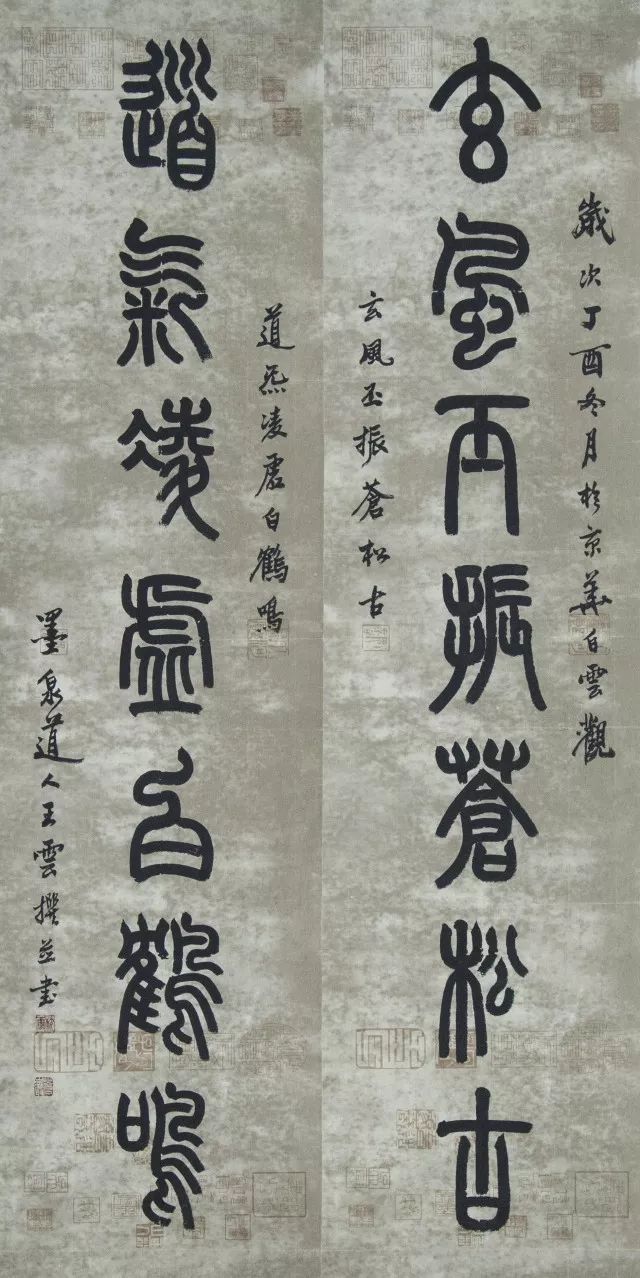 歲次丁酉冬月於京華白雲觀
玄風丕振蒼松古
玄風丕振蒼松古
道炁凌虛白鶴鳴
道氣凌虛白鶴鳴
墨泉道人王雲撰並書